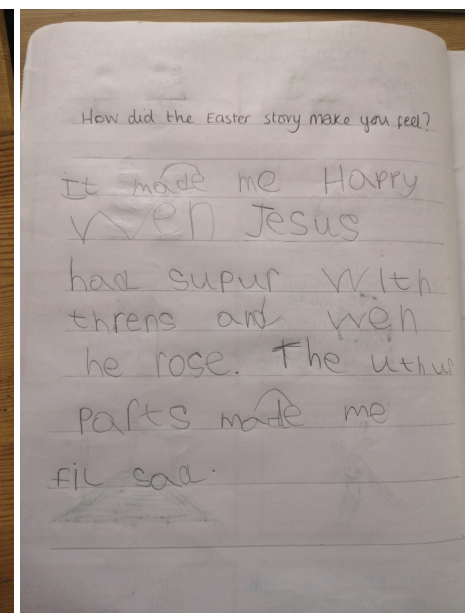 How did the Easter story make you feel?
It made me Happy
wen Jesus
had supur with
threns and wen
he rose. The uthur
parts made me
fil sad.